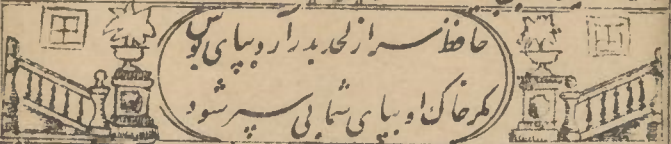 حافظ سر از لحد بدر آرد بپای بوس
گر خاک او بپای شما پی سپر شود